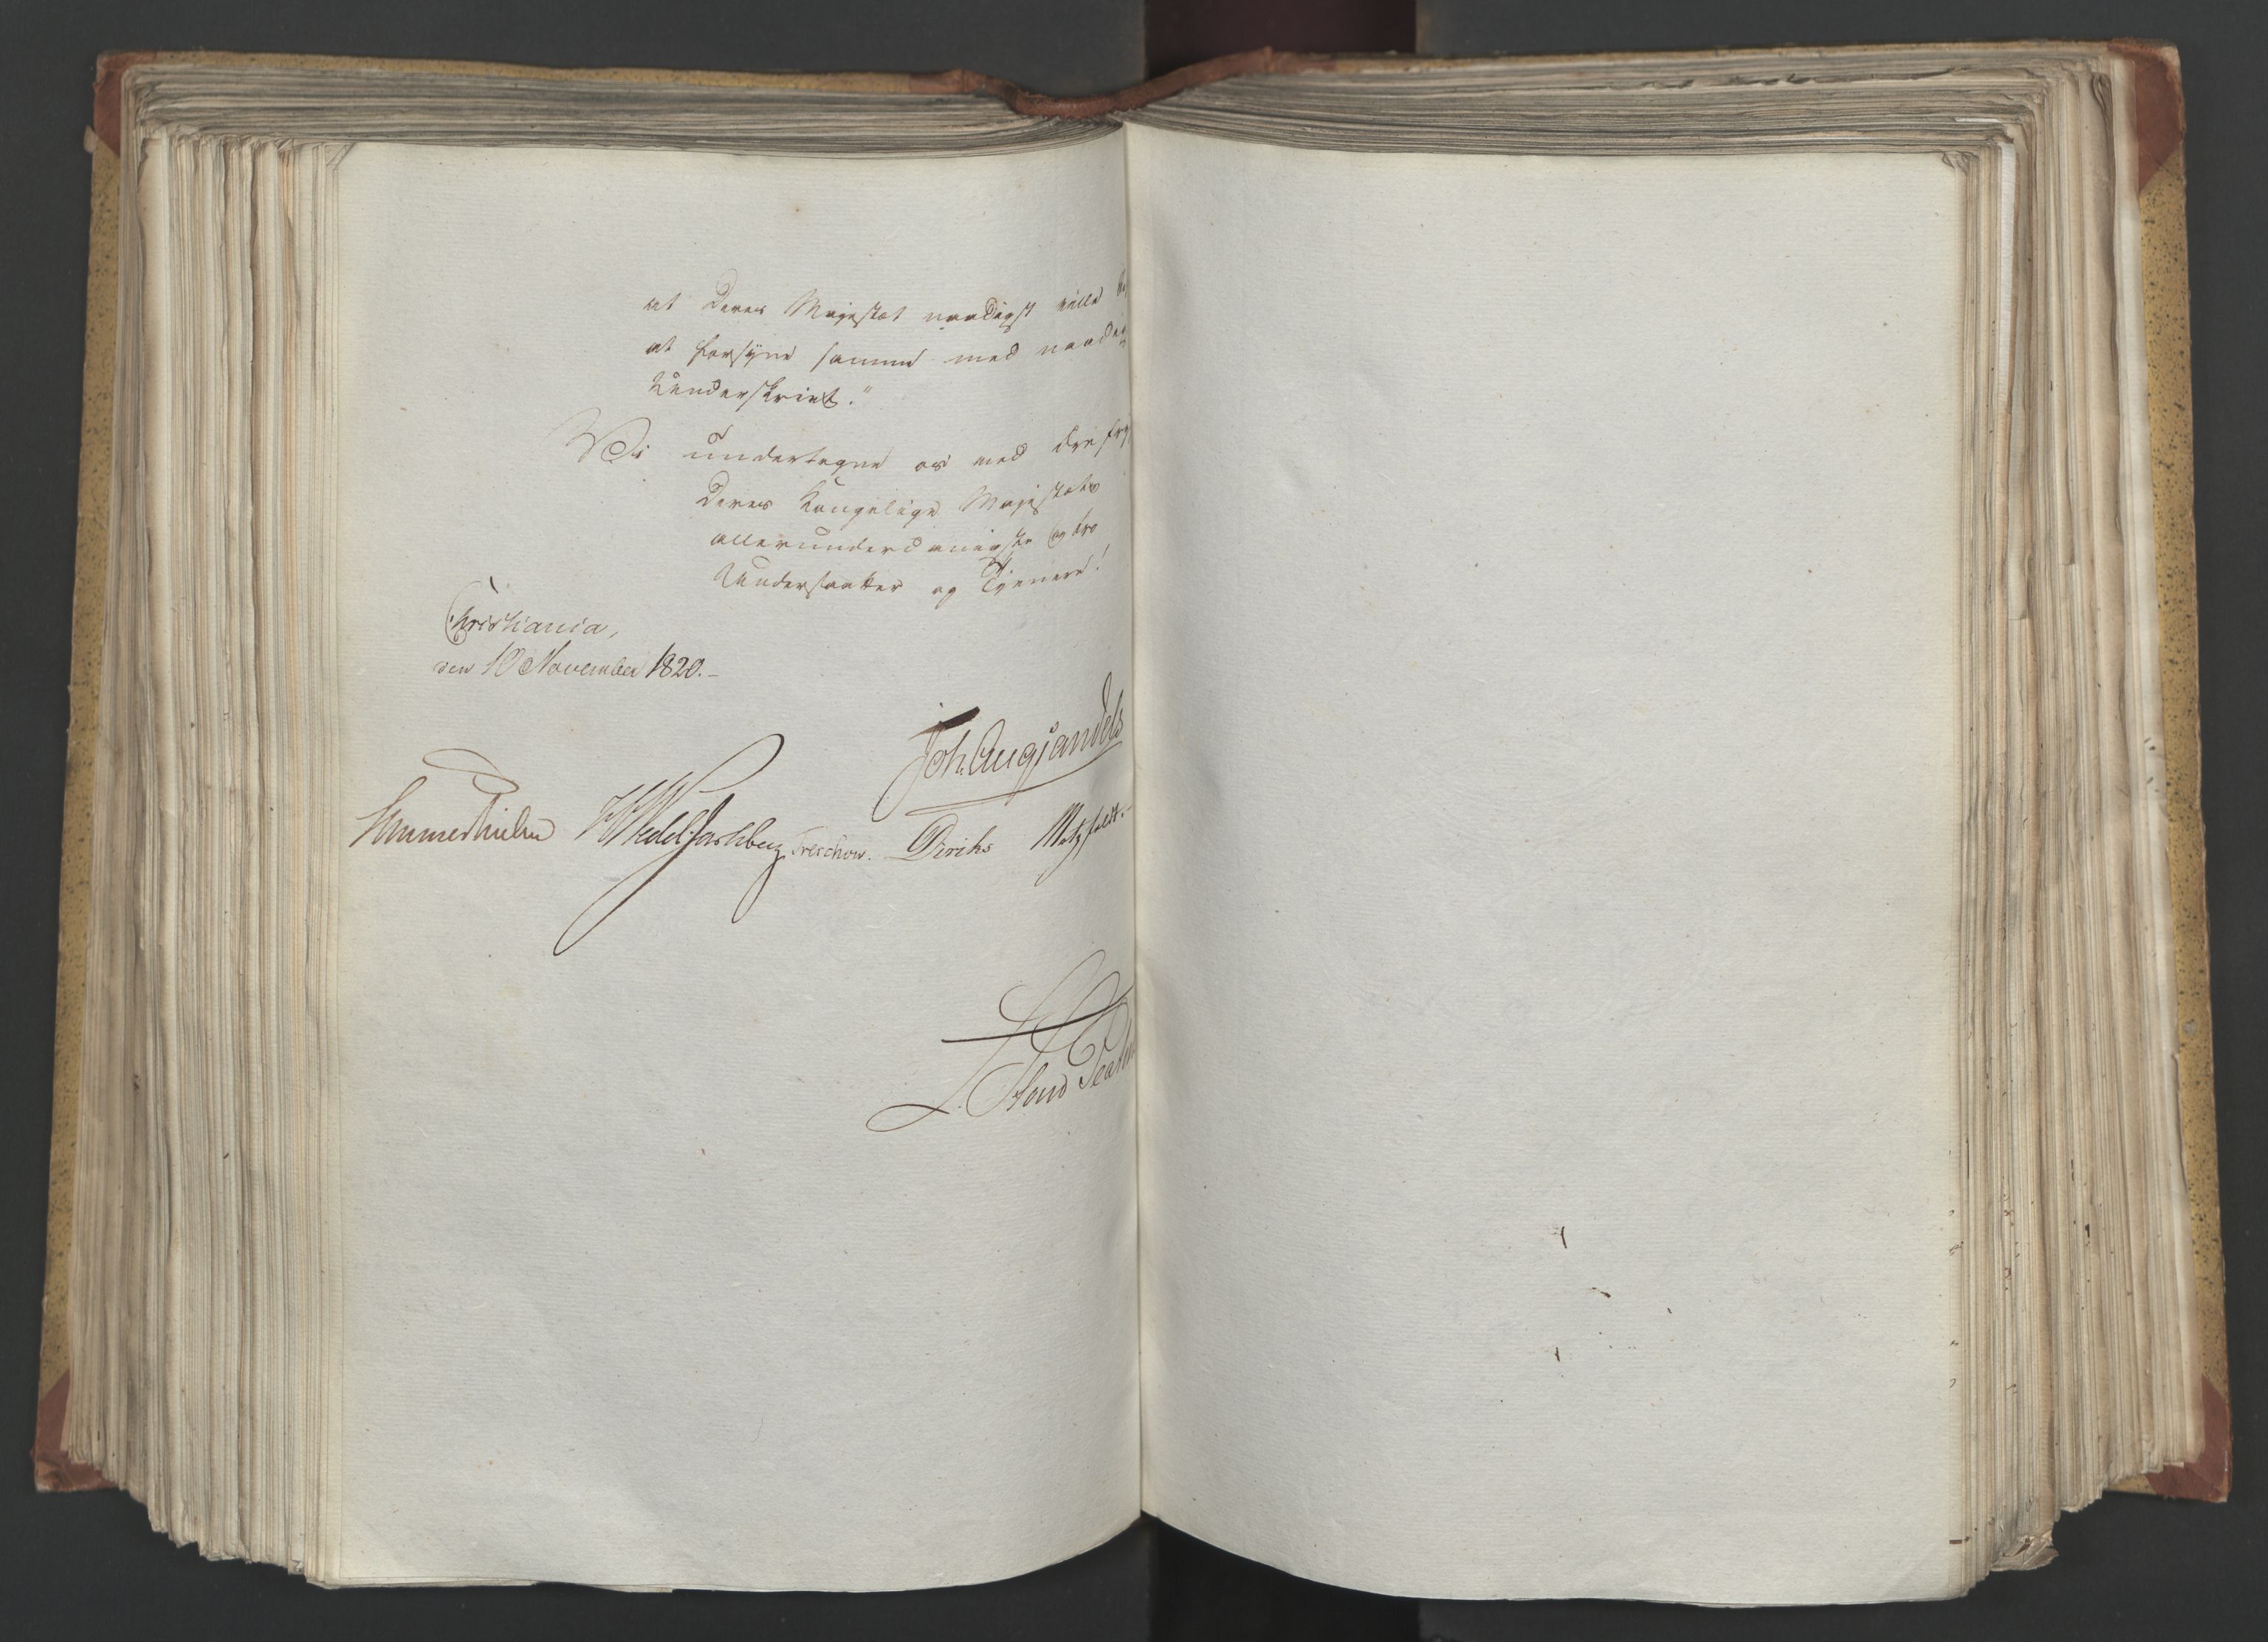 at Deres Majestæt naadigst ville
at forsyne samme med naadig
Underskrivt."
Vi undertegne os med dyb
Deres Kongelige Majestæts
allerunderdanigste og tro
Undersaatter og Tjenere!
Christiania,
den 10 November 1820.-
Joh. Aug. Sandels
Sommerhielm HWedel-Jarlsberg Treschow. Diriks Motzfeldt.